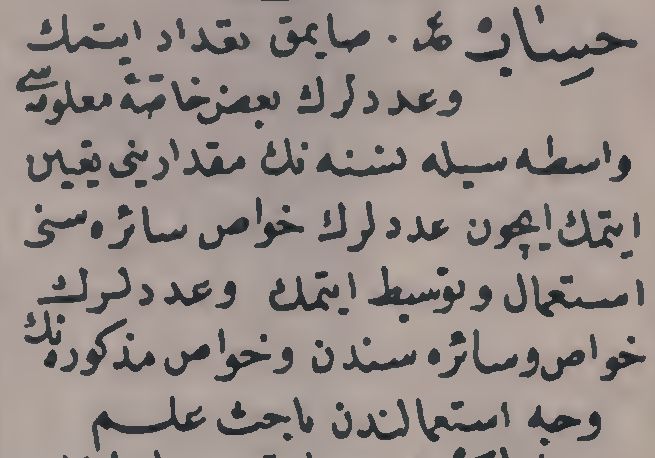 حساب عر. صايمق تعداد ايتمك
وعددلرك بعض خاصهٔ معلومه سى
واسطه سيله نسنه نك مقدارينى تعيين
ايتمك ايچون عددلرك خواص سائره سنى
استعمال وتوسيط ايتمك وعددلرك
خواص وسائره سندن وخواص مذكوره نك
وجه استعمالندن باحث علم